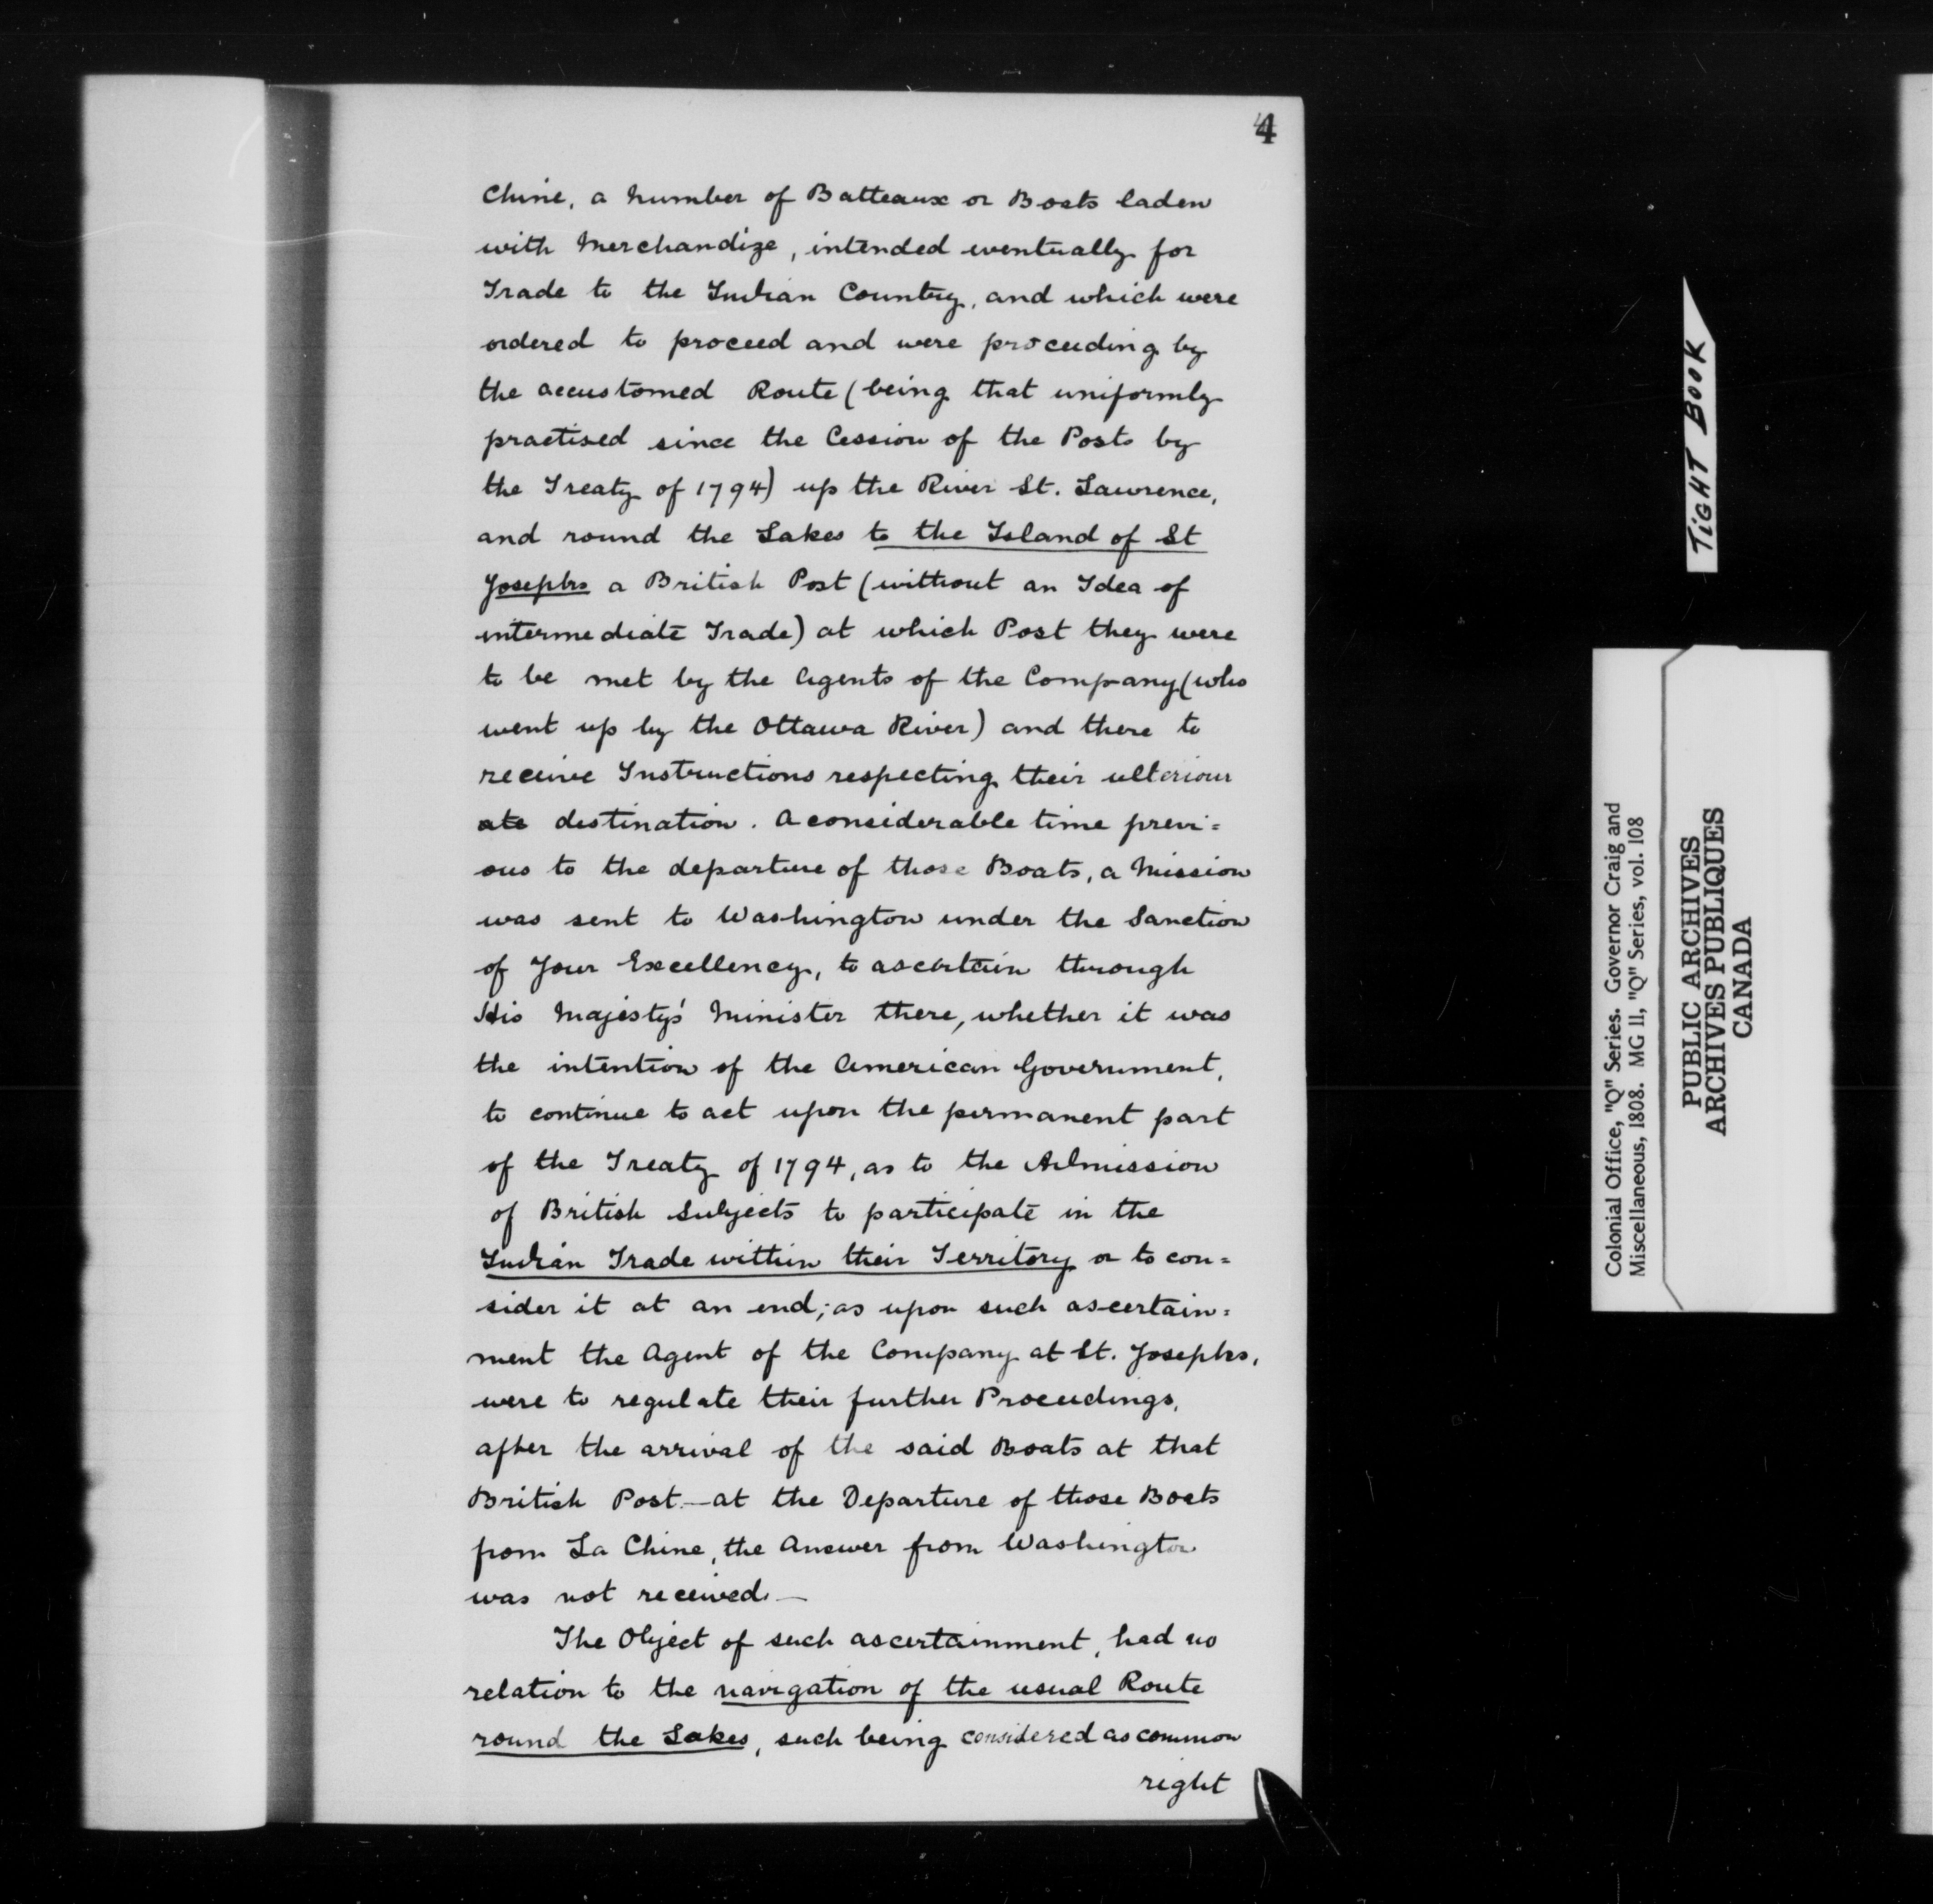 4
Chine, a number of Batteaux or Boats laden
with Merchandize, intended eventually for
Trade to the Indian Country, and which were
ordered to proceed and were proceeding by
the accustomed Route (being that uniformly
practised since the Cession of the Posts by
the Treaty of 1794) up the River St. Lawrence,
and round the Lakes to the Island of St
Josephs a British Post (without an Idea of
intermediate Trade) at which Post they were
to be met by the Agents of the Company (who
went up by the Ottawa River) and there to
receive Instructions respecting their ulteriour
ate destination. A considerable time previ=
ous to the departure of those Boats, a Mission
was sent to Washington under the Sanction
of Your Excellency, to ascertain through
His Majesty's Minister there, whether it was
the intention of the American Government,
to continue to act upon the permanent part
of the Treaty of 1794, as to the Admission
of British Subjects to participate in the
Indian Trade within their Territory or to con=
sider it at an end; as upon such ascertain=
ment the Agent of the Company at St. Josephs,
were to regulate their further Proceedings,
after the arrival of the said Boats at that
British Post.—at the Departure of those Boats
from La Chine, the Answer from Washington
was not received.—
The Object of such ascertainment, had no
relation to the navigation of the usual Route
round the Lakes, such being considered as common
right
TIGHT BOOK
Colonial Office, "Q" Series. Governor Craig and
Miscellaneous, 1808. MG 11, "Q" Series, vol. 108
PUBLIC ARCHIVES
ARCHIVES PUBLIQUES
CANADA